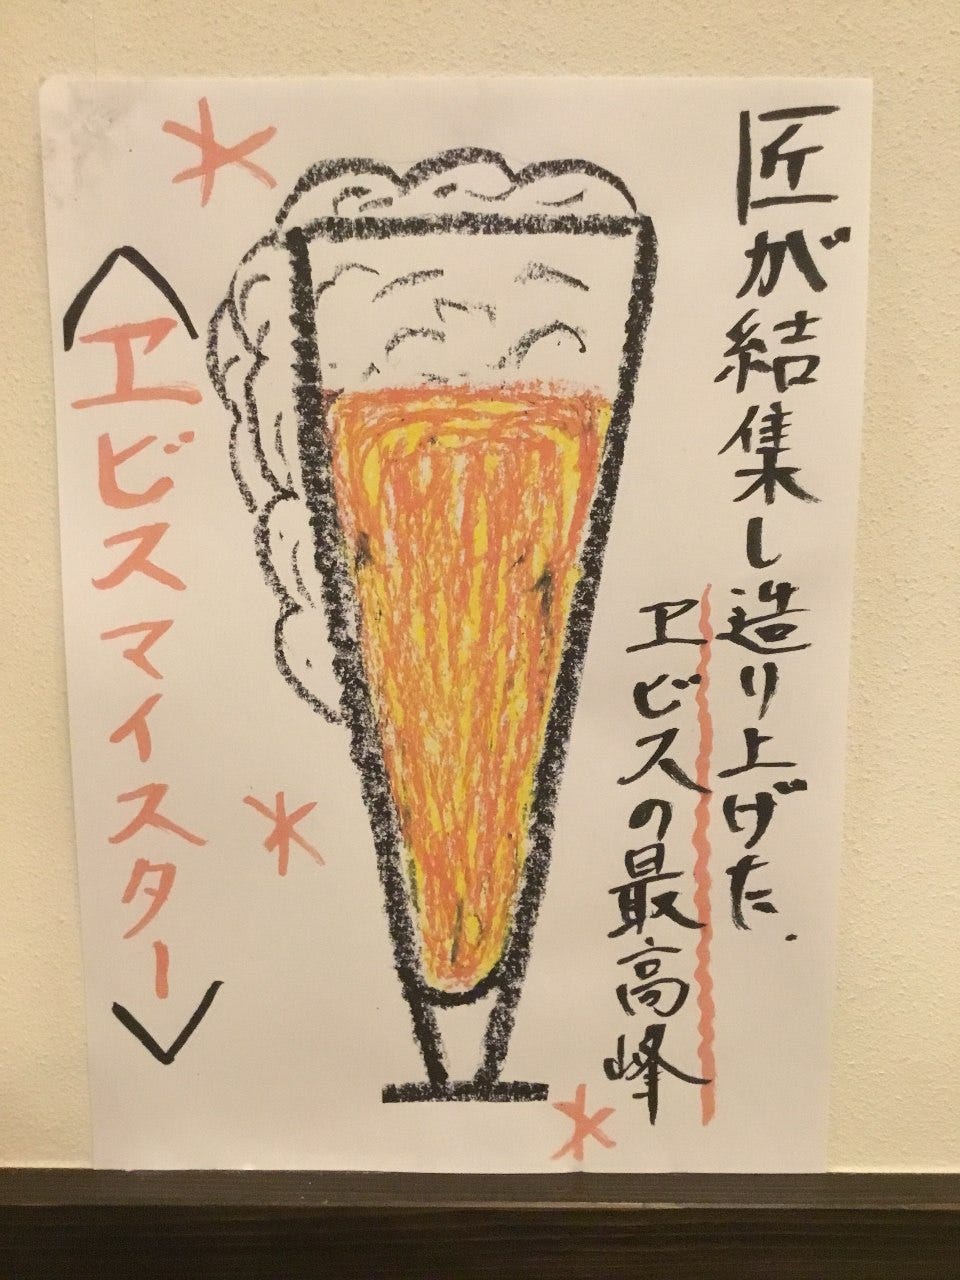 匠が結集し造り上げた.
ヱビスの最高峰
〈ヱビスマイスター〉